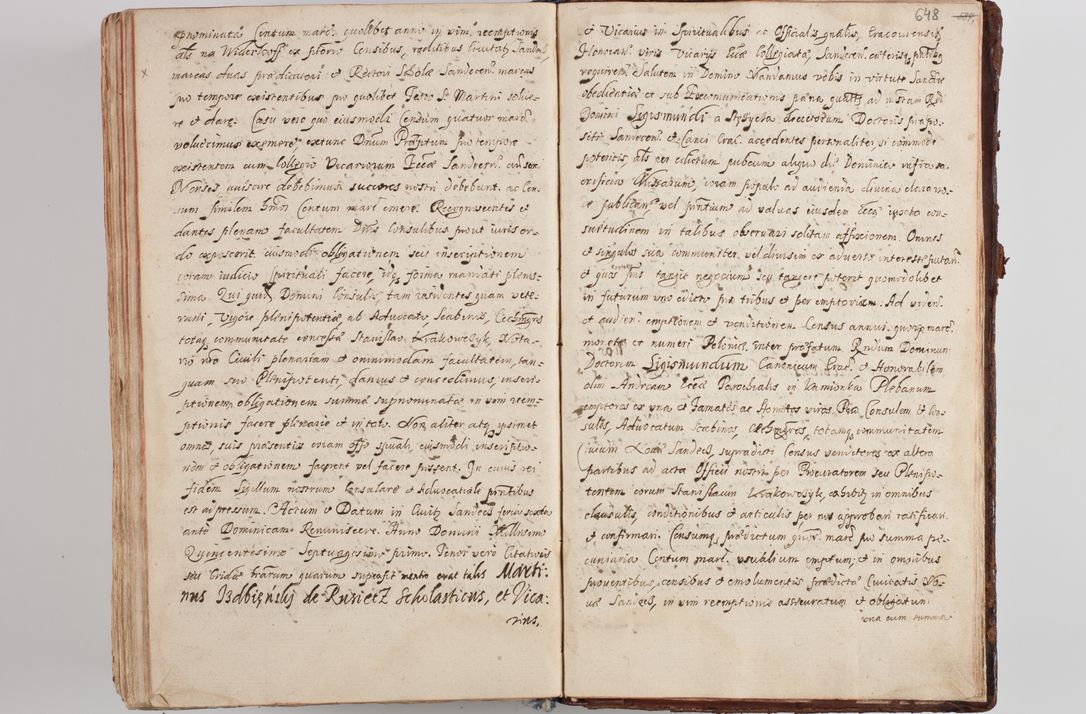 pnominata Centum marc. quolibet anni in vim reemptionis
als na Widerkoff ex pforio Censibus, redditus Civitat. Sandec.
marcas duas prædicatori et Rectori Scholæ Sandecen. marcas
pro tempore existentibus pro quolibet Festo S. Martini solve-
re et dare. Casu vero quo eiusmodi Censum quatuor marc.
voluerimus exemere, extunc Dnum Præptum pro tempore
existentem cum Collegio Vicariorum Eccæ Sandecen. an sex
Menses, avisare debebimus succores nostri debebunt, ac Cen-
sum similem hmoi Centum marc. emere. Recognoscentes et
dantes plenam facultatem Dnis Consulibus prout iuris or-
do exposcerit eiusmodi obligationem seu inscriptionem
coram iudicio spirituali facere, iuq. forma mansati pleniss-
sima. Qui quid. Domini Consules, tam residentes quam vete-
rani, vigore plenipotentiæ, ab Advocato, Scabinis, Cechmgris
totaq. communitate concessa Stanislao Krakowczyk, Nota-
rio pro Civili plenariam et omnimodam facultatem, tan-
quam suo Plenipotenti, damus et concedimus, inscri-
ptionem, obligationem summæ supnominatæ in vim reem-
ptionis facere plenarie et in toto. Non aliter atq. ipsimet
omnes, suis præsentiis coram offo spuali, eiusmodi inscriptio-
nem et obligationem facerent vel facere possent. In cuius rei
fidem Sigillum nostrum Consulare et Advocatiale pntibus
est aipressum. Actum et Datum in Civit. Sandecz feria sexta
ante Dominicam Reminiscere. Anno Domini Millesimo
Quingentesimo Septuagesimo primo. Tenor verò Citationis
seu Cridæ trarum quarum suprafit mentio erat talis Marti:
nus Izdbieński de Rusietz Scholasticus, et Vica-
rius,
648
et Vicarius in Spiritualibus et Officialis gnalis, Cracoviensis,
Honoran. viris Vicariis Eccæ Collegiatæ, Sandecen. cæterisq. pntibq.
requiren. Salutem in Domino. Mandamus vobis in virtute Sanctæ
obedientiæ et sub Excommunicationis pæna, quatts ad nstam Rdi
Domini Sigismundi a Stężyca decretorum Doctoris præpo-
siti Sandecen. et Canci Crac. accedentes personaliter si commode
poteritis, als per edictum publicum aliquo die Dominico infra sa-
crificia Missarum, coram populo ad audienda divina clara vo-
ce publicen. vel pntium ad valvas eiusdem Eccæ iuxta con-
suetudinem in talibus observari solitam affixionem. Omnes
et singulos sua communiter vel divisim ex adverso interesse putan.
et quos pns tangit negocium seu tangere poterit quomodolibet
in futurum uno edicto pro tribus et peremptoriam. Ad viden.
et audien. emptionem et venditionem Census annui quatuor marc.
monetæ et numeri Polonic. inter præfatum Rndum Dominum
Doctorem Sigismundum Canonicum Crac. et Honorabilem
olim Andream Eccæ Parochialis in Kamionka Plebanum
emptores ex una et Famatos ac Honestos viros Pro Consulem et Con-
sules, Advocatum Scabinos, Cechmgros, totamq. communitatem
Civium Novæ Sandecz, supradicti Census venditores ex altera
partibus ad acta Officii nostri per Procuratorem seu Plenipo-
tentem eorum Stanislaum Krakowczyk, exhibitq. in omnibus
clausulis, conditionibus et articulis per nos approbari ratificari
et confirmari. Censumq. prædictum quor. marc. pro summa pe-
cuniaria Centum marc. usualium emptum, et in omnibus
proventibus, censibus et emolumentis prædictæ Civitatis No-
væ Sandecz, in vim reemptionis assecuratum et obligatum
una cum summa